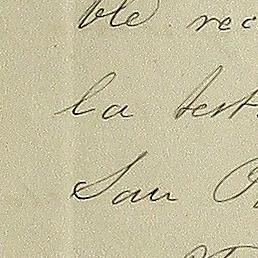 ble rec
la test
San O